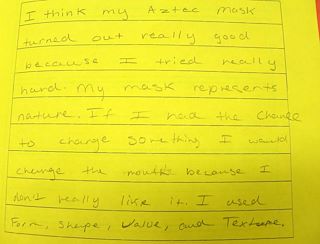 I think my Aztec Mask
turned out really good
because I tried really
hard. My mask represents
nature. If I had the Chance
to change something I would
change the mouth because I
don't really like it. I used
Form, Shape, Value, and Texture.